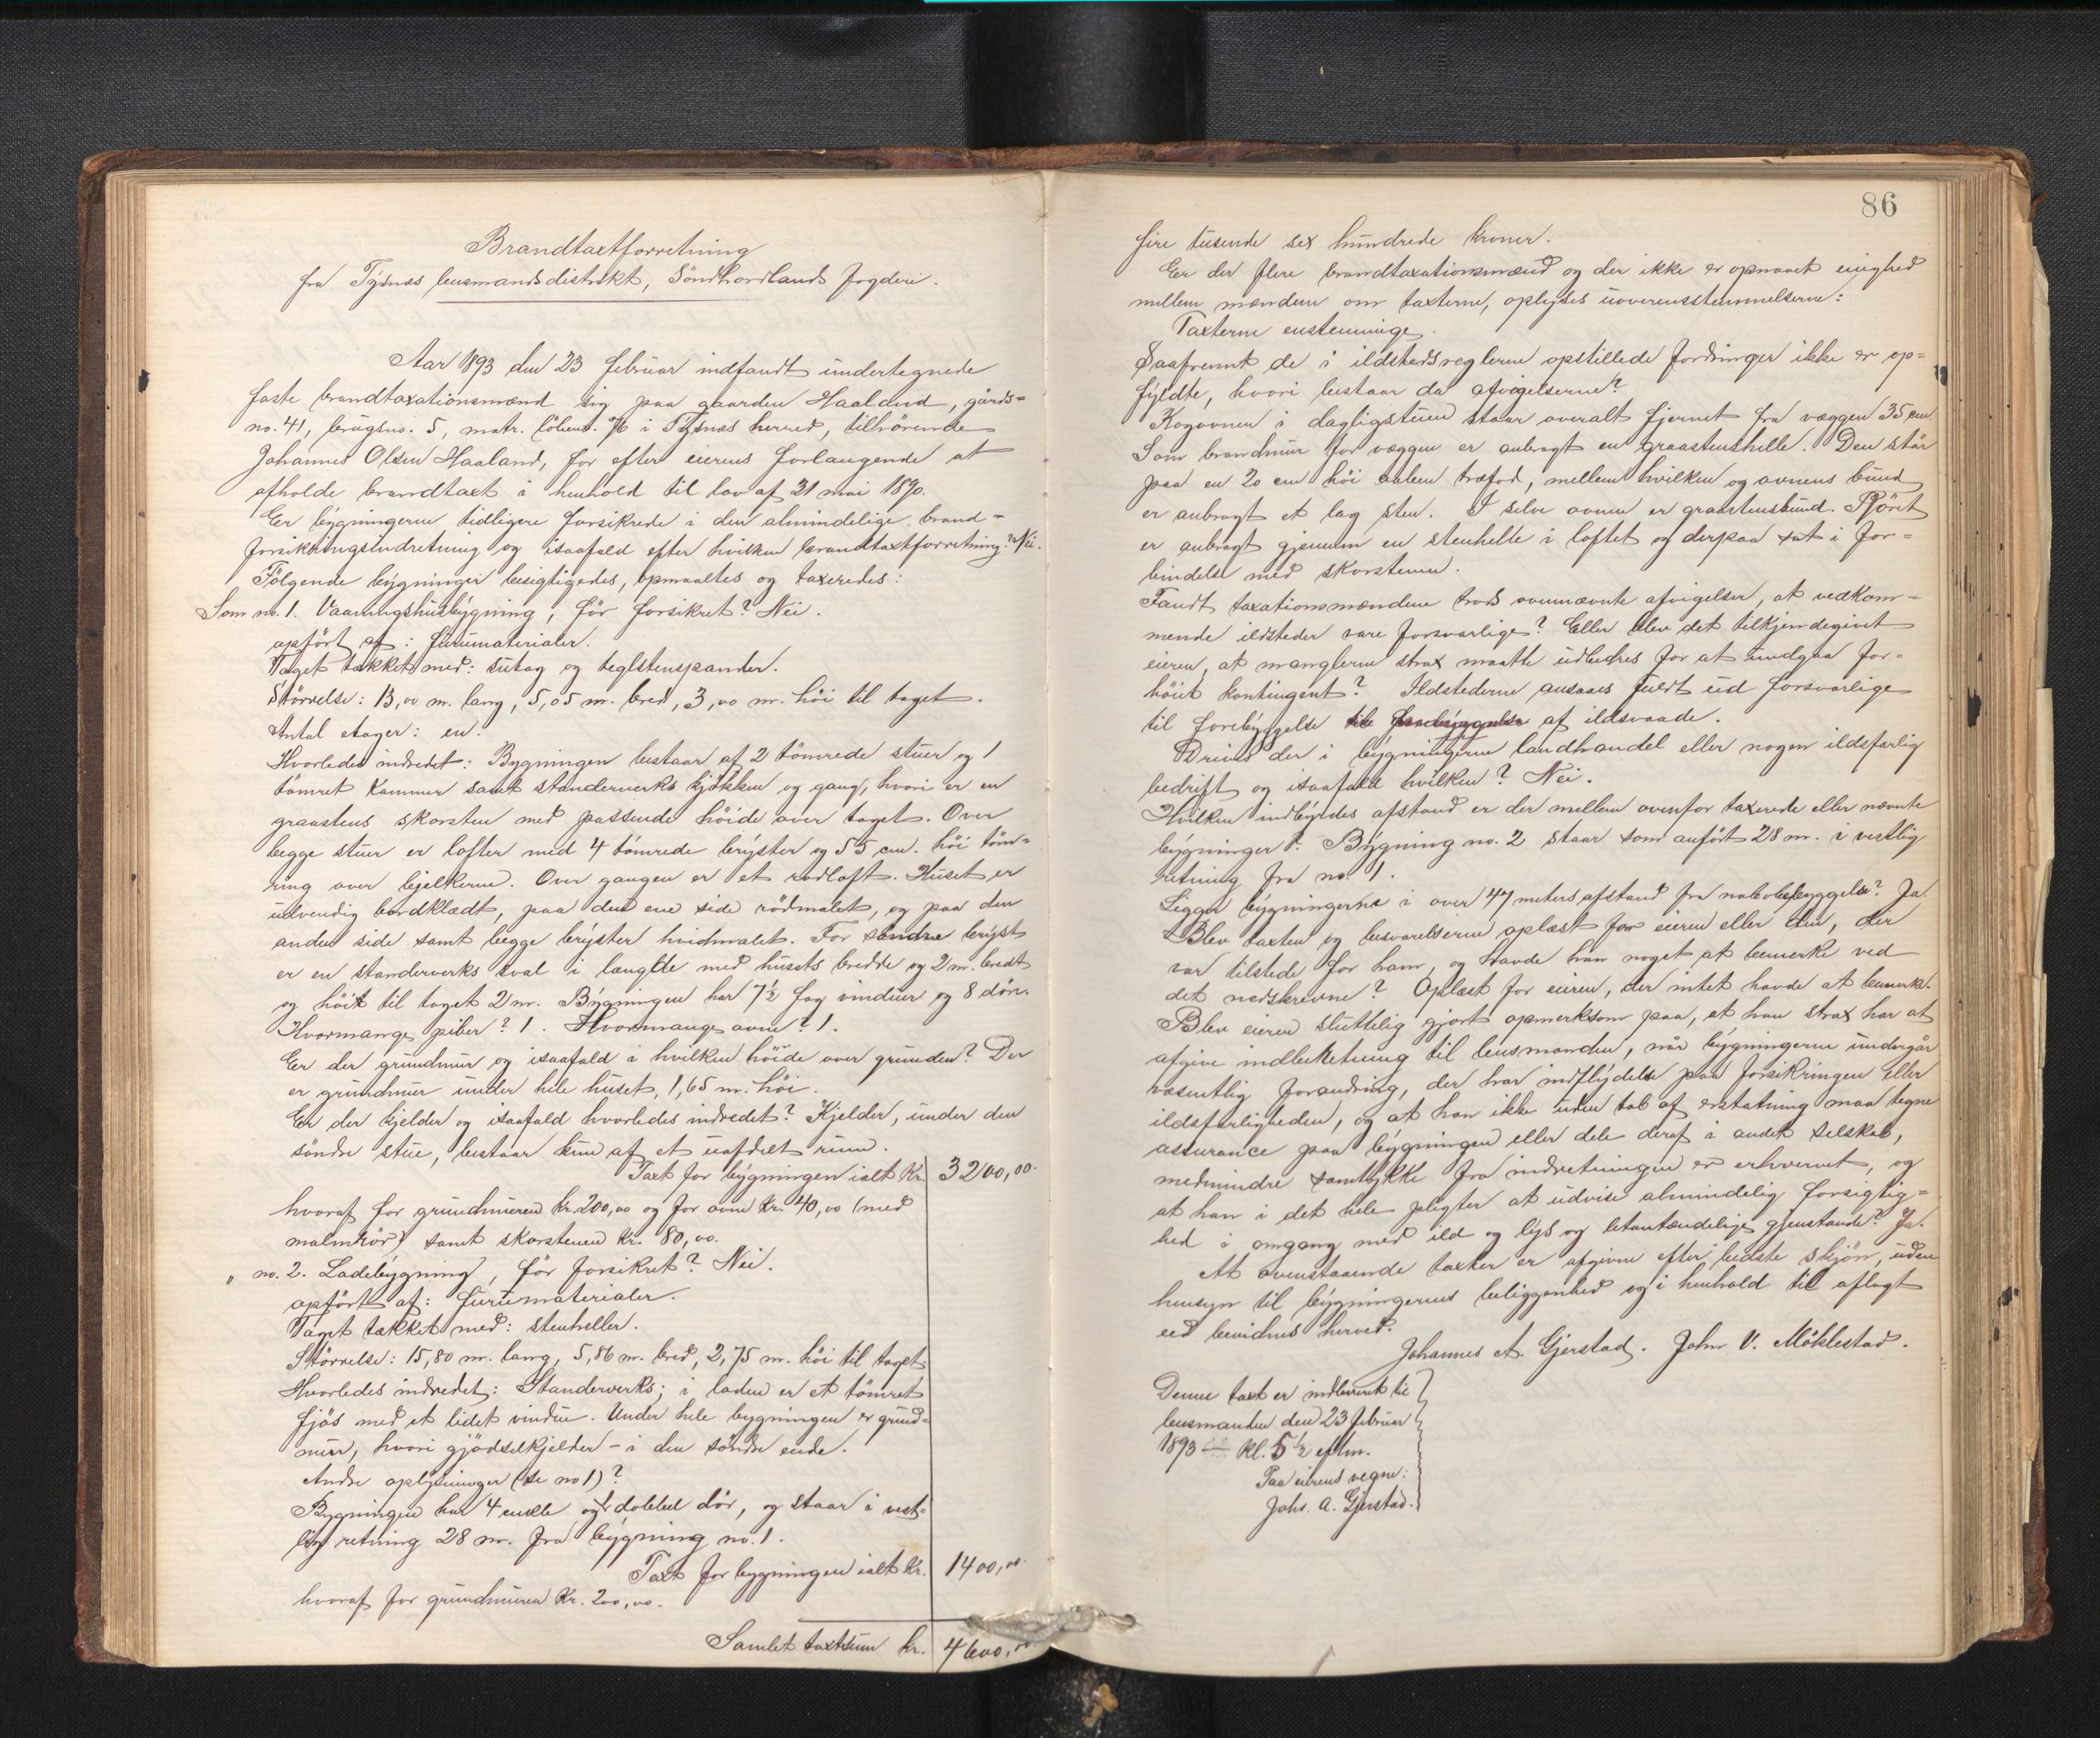 Brandtaxtforretning
fra Tysnæs lensmandsdistrikt, Söndhordlands fogderi.
Aar 1893 den 23 februar indfandt undertegnede
faste brandtaxationsmænd sig paa gaarden Haaland, gårds-
no. 41, brugsno. 5, matr. löbens. 76 i Tysnæs herred, tilhörende
Johannes Olsen Haaland, for efter eierens forlangende at
afholde brandtaxt i henhold til lov af 31 mai 1890.
Er bygningerne tidligere forsikrede i den almindelige brand-
forsikringsindretning og isaafald efter hvilken brandtaxtforretning? Nei.
Fölgende bygninger besigtigedes, opmaaltes og taxeredes:
Som no. 1. Vaaningshusbygning, för forsikret? Nei.
opfört af: furumaterialer.
Taget tækket med: sutag og teglstenspander.
Störrelse: 13,00 m. lang, 5,05 m. bred, 3,00 m. höi til taget.
Antal etager: en.
Hvorledes indredet: Bygningen bestaar af 2 tömrede stuer og 1
tömret kammer samt standerverks kjökken og gang, hvori er en
graastens skorsten med passende höide over taget. Over
begge stuer er lofter med 4 tömrede bryster og 55 cm. höi töm-
ring over bjelkerne. Over gangen er et rodloft. Huset er
udvendig bordklædt, paa den ene side rödmalet, og paa den
anden side samt begge bryster hvidmalet. For söndre bryst
er en standerverks sval i længde med husets bredde og 2 m. bredt
og höit til taget 2 m. Bygningen har 7½ fag vinduer og 8 döre.
Hvormange piber? 1. Hvormange ovne? 1.
Er der grundmur og isaafald i hvilken höide over grunden? Der
er grundmur under hele huset, 1,65 m. höi.
Er der kjelder og isaafald hvorledes indredet? Kjelder, under den
söndre stue, bestaar kun af et uafdelt rum.
Taxt for bygningen ialt Kr. 3200,00.
hvoraf for grundmuren kr. 200,00 og for ovne Kr. 40,00 (med
malmrör) samt skorstenen Kr. 80,00.
" no. 2. Ladebygning, för forsikret? Nei.
opfört af: furumaterialer.
Taget tækket med: stenheller.
Störrelse: 15,80 m. lang, 5,86 m. bred, 2,75 m. höi til taget.
Hvorledes indredet: Standerverks; i laden er et tömret
fjös med et lidet vindue. Under hele bygningen er grund-
mur, hvori gjödselkjelder - i den söndre ende.
Andre oplysninger (se no 1)?
Bygningen har 4 enkle og 1 dobbel dör, og staar i vest-
lig retning 28 m. fra bygning no. 1.
Taxt for bygningen ialt Kr. 1400,00.
hvoraf for grundmuren Kr. 200,00.
Samlet taxtsum kr. 4600,00
86
fire tusende sex hundrede kroner.
Er der flere brandtaxationsmænd og der ikke er opnaaet enighed
mellem mændene om taxterne, oplyses uoverensstemmelserne:
Taxterne enstemmige.
Saafremt de i ildstedsreglerne opstillede fordringer ikke er op-
fyldte, hvori bestaar da afvigelserne?
Kogovnen i dagligstuen staar overalt fjernet fra væggen 35 cm.
Som brandmur for væggen er anbragt en graastenshelle. Den står
paa en 20 cm höi aaben træfod, mellem hvilken og ovnens bund
er anbragt et lag sten. I selve ovnen er graastensbund. Röret
er anbragt gjennem en stenhelle i loftet og derpaa sat i for-
bindelse med skorstenen.
Fandt taxationsmændene trods ovennævnte afvigelser, at vedkom-
mende ildsteder vare forsvarlige? Eller blev det tilkjendegivet
eieren, at manglerne strax maatte udbedres for at undgaa for-
höiet kontingent? Ildstederne ansaaes fuldt ud forsvarlige
til forebyggelse til forebyggelse af ildsvaade.
Drives der i bygningerne landhandel eller nogen ildsfarlig
bedrift og isaafald hvilken? Nei.
Hvilken indbyrdes afstand er der mellem ovenfor taxerede eller nævnte
bygninger? Bygning no. 2 staar som anfört 28 m. i vestlig
retning fra no. 1.
Ligger bygningerne i over 47 meters afstand fra nabobebyggelse? Ja.
Blev taxten og besvarelserne oplæst for eieren eller den, der
var tilstede for ham, og havde han noget at bemerke ved
det nedskrevne? Oplæst for eieren, der intet havde at bemerke.
Blev eieren sluttelig gjort opmerksom paa, at han strax har at
afgive indberetning til lensmanden, når bygningerne undergår
væsentlig forandring, der har indflydelse paa forsikringen eller
ildsfarligheden, og at han ikke uden tab af erstatning maa tegne
assurance paa bygningen eller dele deraf i andet selskab,
medmindre samtykke fra indretningen er erhvervet, og
at han i det hele pligter at udvise almindelig forsigtig-
hed i omgang med ild og lys og letantændelige gjenstande? Ja.
At ovenstaaende taxter er afgivne efter bedste skjön, uden
hensyn til bygningernes beliggenhed og i henhold til aflagt
eed bevidnes herved.
Johannes A. Gjerstad. John V. Möklestad.
Denne taxt er indleveret til
lensmanden den 23 februar
1893 Kl. 5½ eftm.
Paa eierens vegne:
Johs. A. Gjerstad.